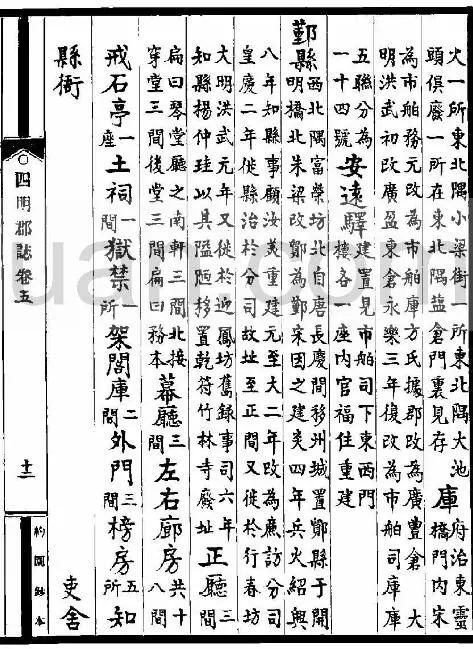 火一所東北隅小梁街一所東北隅大池
頭俱廢一所在東北隅鹽倉門裏見存
庫
府治東靈
橋門內宋
為市舶務元改為市舶庫方氏據郡改為廣豐倉大
明洪武初改廣盈東倉永樂三年復改為市舶司庫庫
五聯分為
一十四號
安遠驛
建置見市舶司下東西門
樓各一座內官福住重建
鄞縣
西北隅富榮坊北自唐長慶間移州城置鄮縣于開
明橋北朱梁改鄮為鄞宋因之建炎四年兵火紹興
八年知縣事顧汝美重建元至大二年改為廉訪分司
皇慶二年徙縣治於分司故址至正間又徙於行春坊
大明洪武元年又徙於迎鳳坊舊錄事司六年
知縣揚仲珪以其隘陋移置乾符竹林寺廢址
正廳
三
間
扁曰琴堂廳之南軒三間北接
穿堂三間後堂三間扁曰務本
幕廳
三
間
左右廊房
共十
八間
戒石亭
一
座
土祠
一
間
獄禁
一
所
架閣庫
二
間
外門
三
間
榜房
五
所
知
縣衙
吏舍
四明郡誌卷五
十二
約園鈔本